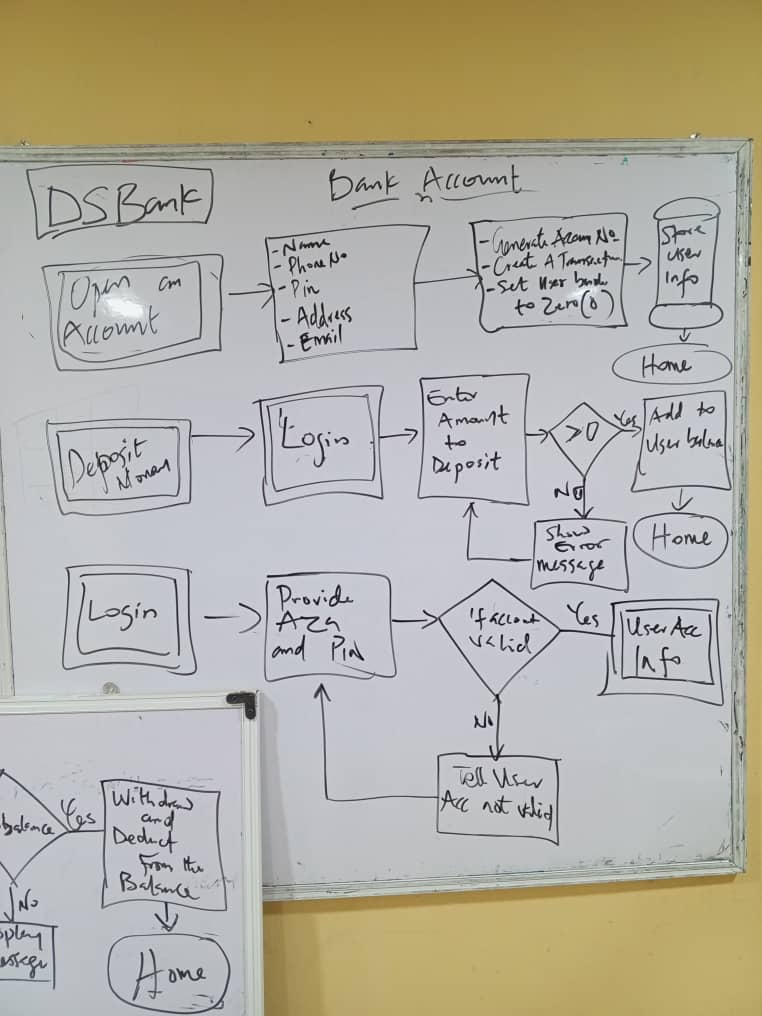 DSBank
Bank Account
Open an
Account
- Name
- Phone No
- Pin
- Address
- Email
- Generate Azam No
- Create A Transaction
- Set User
to Zero(0)
Store
User
Info
Home
Deposit
Money
Login
Enter
Amount
to
Deposit
>0
Yes
Add to
User balance
No
Show
Error
message
Home
Login
Provide
AZa
and PIN
if accout
valid
Yes
User Acc
Info
No
Tell User
Acc not valid
balance
Yes
Withdraw
and
Deduct
From the
Balance
No
Home